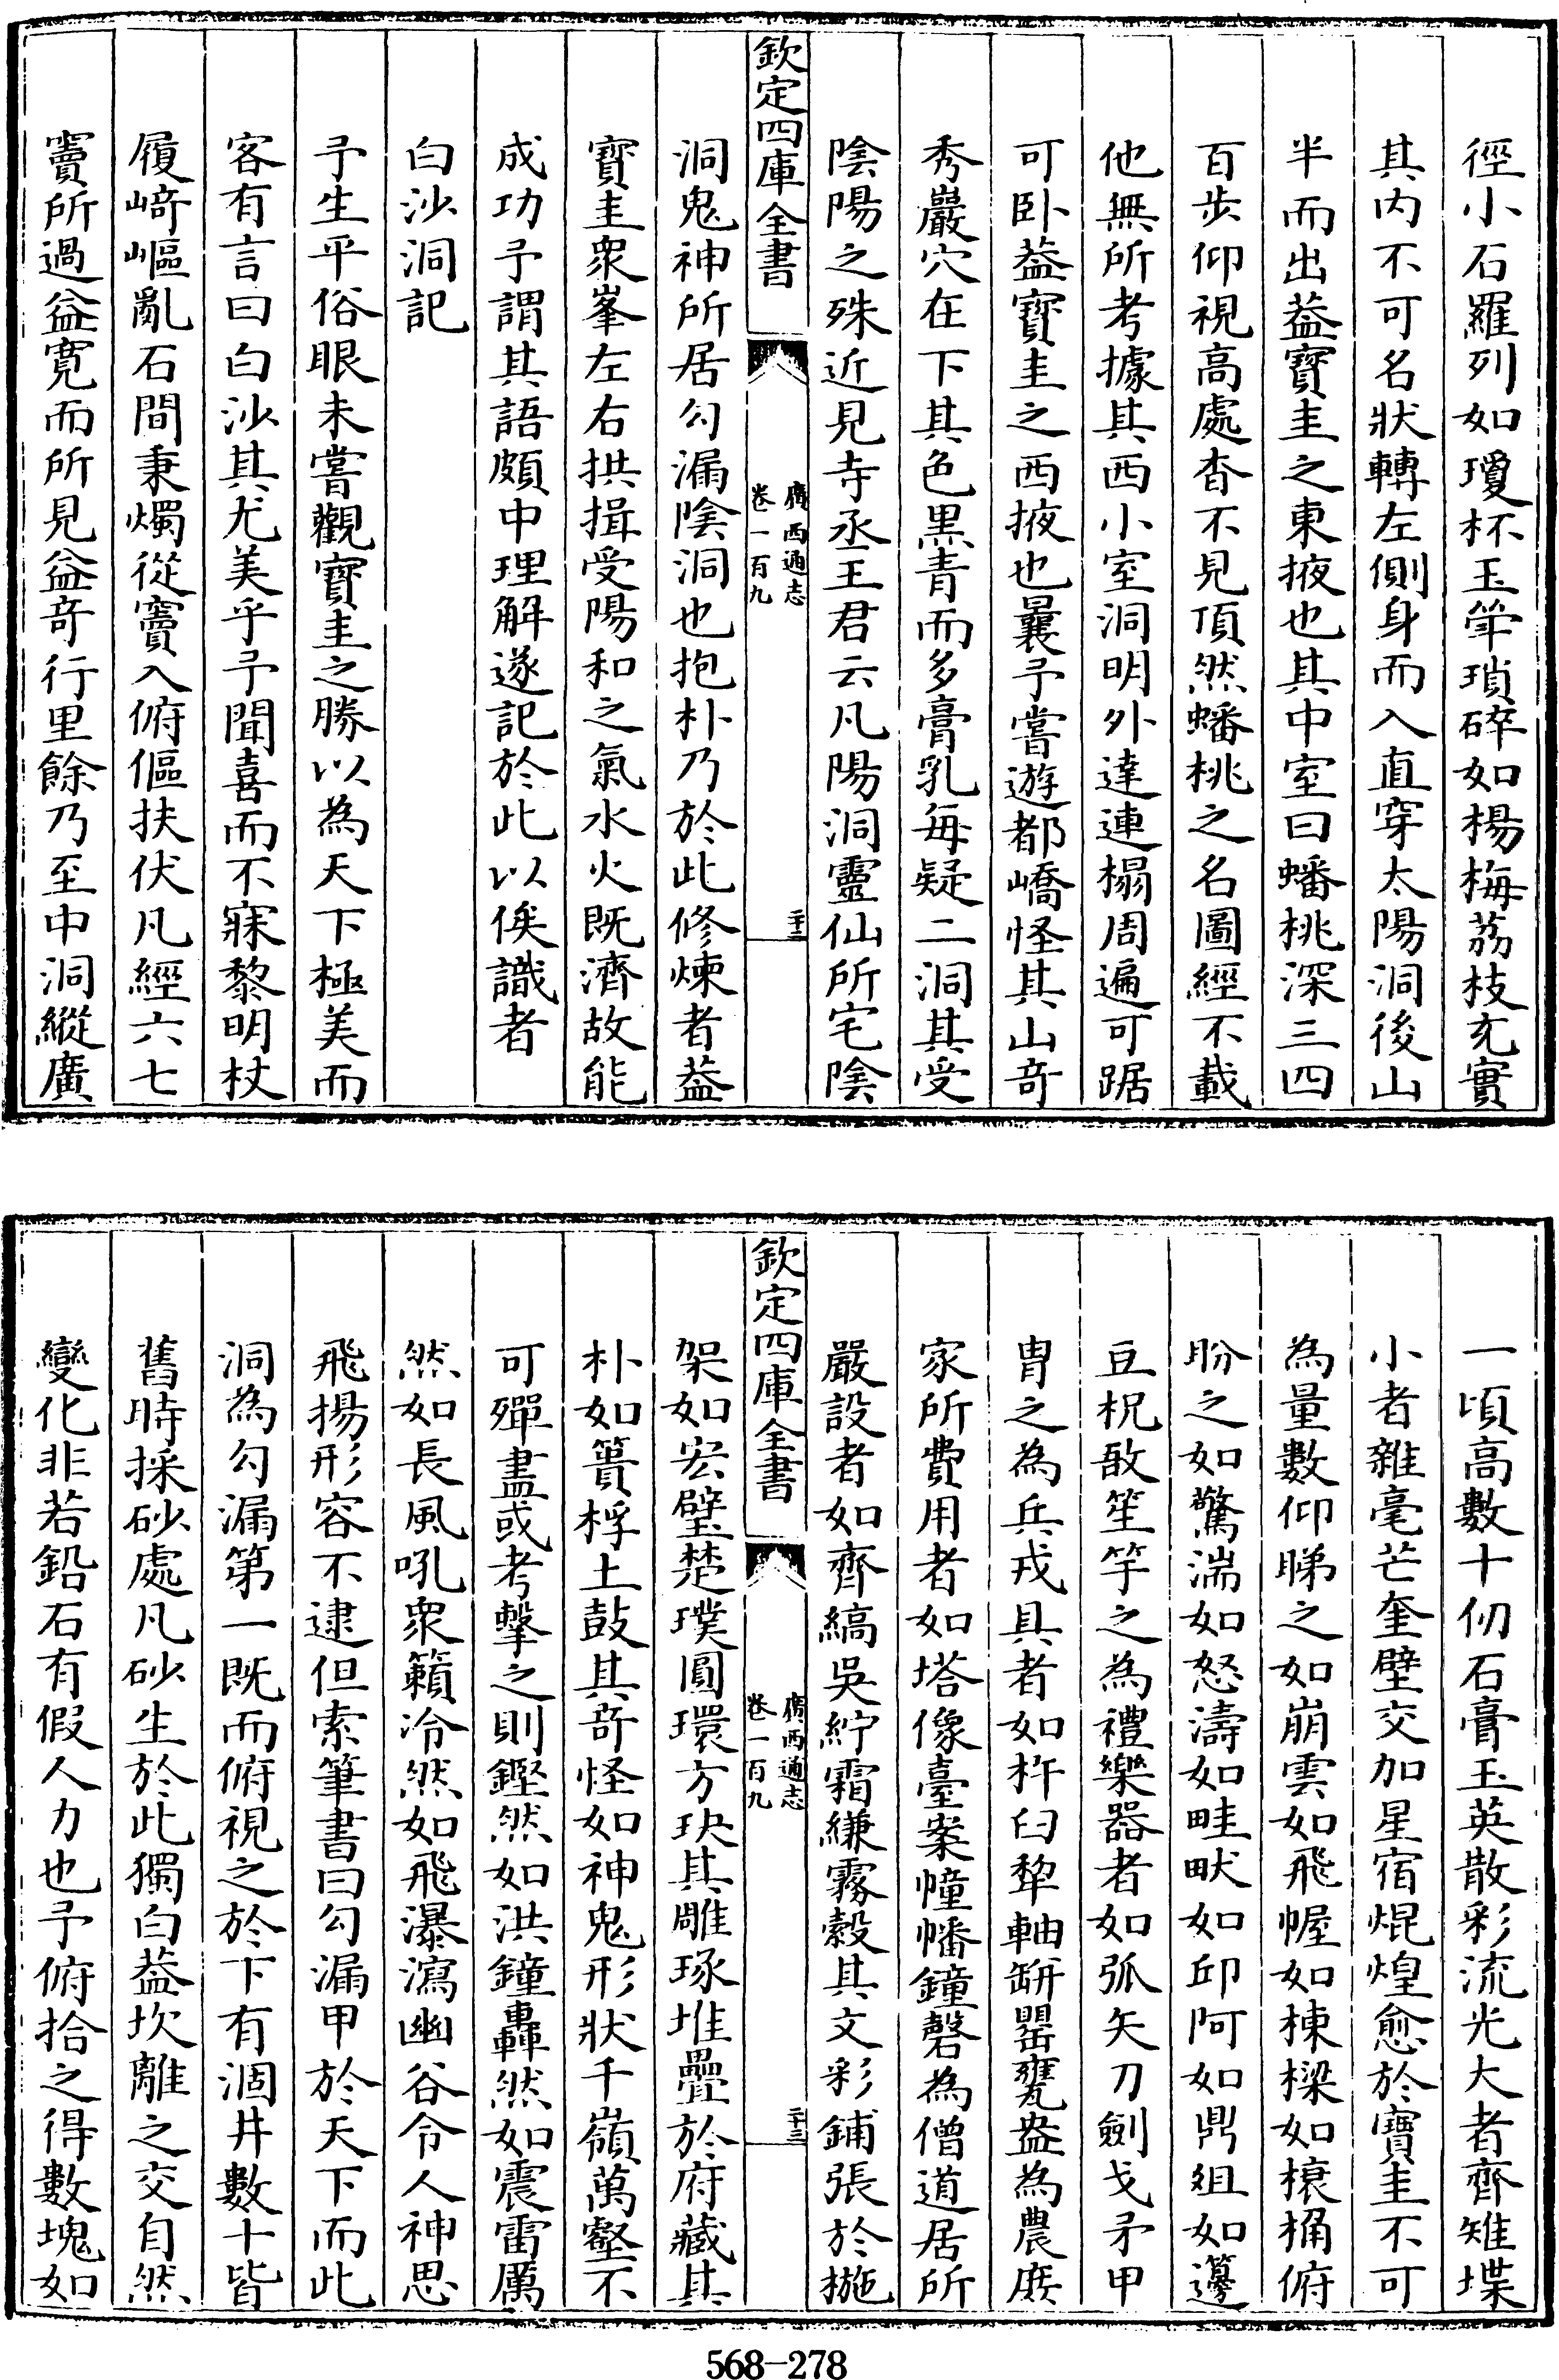 徑小石羅列如瓊杯玉斝瑣碎如楊梅荔枝充實
其内不可名狀轉左側身而入直穿太陽洞後山
半而出葢寶圭之東掖也其中室曰蟠桃深三四
百步仰視高處杳不見頂然蟠桃之名圖經不載
他無所考據其西小室洞明外達連榻周遍可踞
可卧葢寶圭之西掖也曩予嘗遊都嶠怪其山奇
秀巖穴在下其色黑青而多膏乳每疑二洞其受
陰陽之殊近見寺丞王君云凡陽洞靈仙所宅陰
欽定四庫全書
廣西通志
卷一百九
二十二
洞鬼神所居勾漏陰洞也抱朴乃於此修煉者葢
寶圭衆峯左右拱揖受陽和之氣水火既濟故能
成功予謂其語頗中理解遂記於此以俟識者
白沙洞記
予生平俗眼未嘗觀寶圭之勝以為天下極美而
客有言曰白沙其尤美乎予聞喜而不寐黎明杖
履﨑嶇亂石間秉燭從竇入俯傴扶伏凡經六七
竇所過益寛而所見益竒行里餘乃至中洞縱廣
一頃高數十仞石膏玉英散彩流光大者齊雉堞
小者雜毫芒奎壁交加星宿焜煌愈於寶圭不可
為量數仰睇之如崩雲如飛幄如棟樑如榱桷俯
盼之如驚湍如怒濤如畦畎如邱阿如鼎俎如籩
豆柷敔笙竽之為禮樂器者如弧矢刀劍戈矛甲
胄之為兵戎具者如杵臼犂軸缾罌甕盎為農庶
家所費用者如塔像臺案幢幡鐘磬為僧道居所
嚴設者如齊縞吳紵霜縑霧縠其文彩鋪張於椸
欽定四庫全書
廣西通志
卷一百九
二十三
架如宏璧楚璞圓環方玦其雕琢堆疊於府藏其
朴如蕢桴土鼓其竒怪如神鬼形狀千嶺萬壑不
可殫盡或考擊之則鏗然如洪鐘轟然如震雷厲
然如長風吼衆籟冷然如飛瀑瀉幽谷令人神思
飛揚形容不逮但索筆書曰勾漏甲於天下而此
洞為勾漏第一既而俯視之於下有涸井數十皆
舊時採砂處凡砂生於此獨白葢坎離之交自然
變化非若鉛石有假人力也予俯拾之得數塊如
568-278